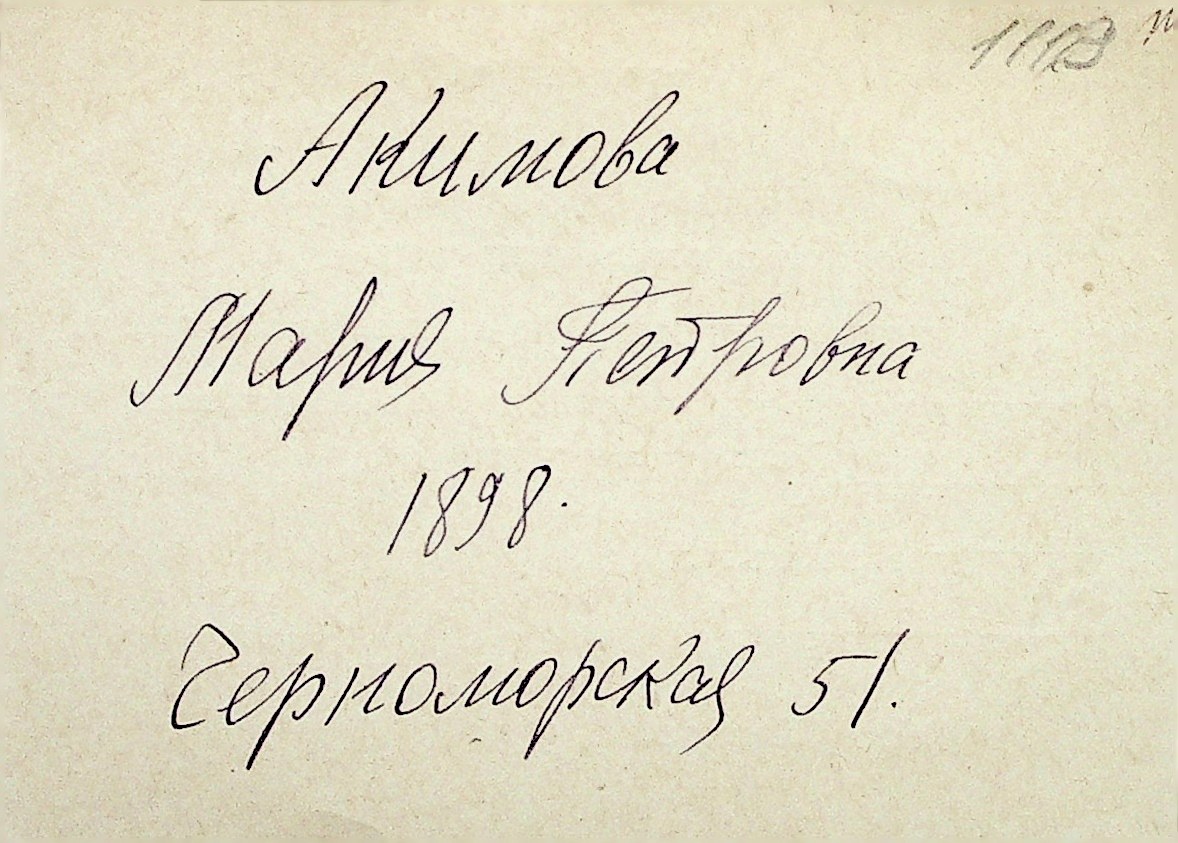 Акимова
Мария Петровна
1898.
Черноморская 51.